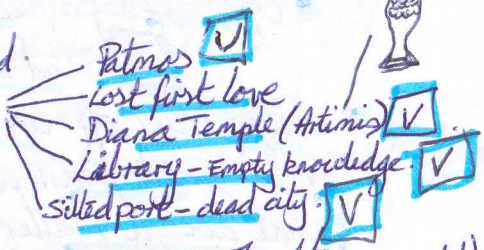 Patmos
Lost first love
Diana Temple (Artimis)
Library - Empty knowledge.
Silted port - dead city.